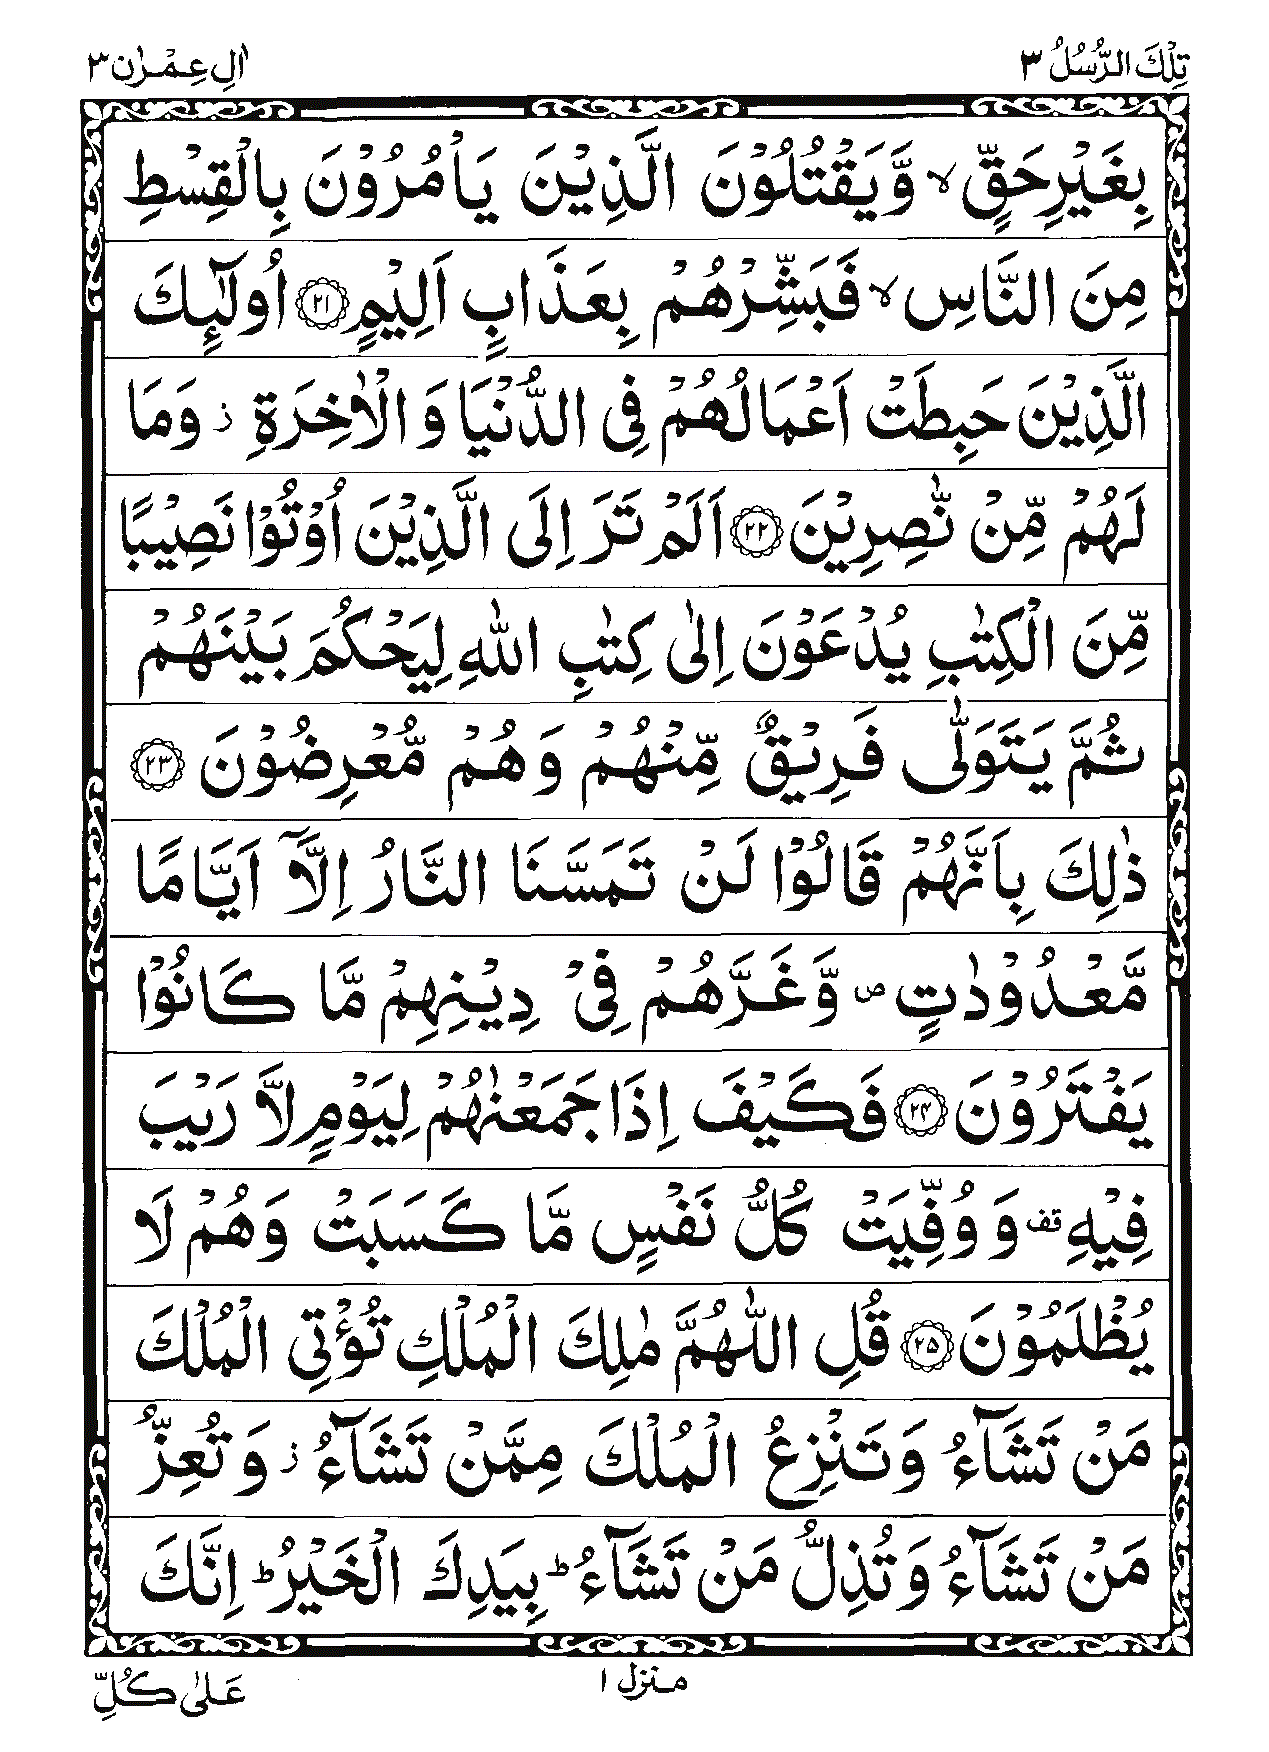 تِلْكَ الرُّسُلُ ٣
اٰلِ عِمْرٰن ٣
بِغَيْرِ حَقٍّ ۙ وَّيَقْتُلُوْنَ الَّذِيْنَ يَاْمُرُوْنَ بِالْقِسْطِ
مِنَ النَّاسِ ۙ فَبَشِّرْهُمْ بِعَذَابٍ اَلِيْمٍ ﴿۲۱﴾ اُولٰٓئِكَ
الَّذِيْنَ حَبِطَتْ اَعْمَالُهُمْ فِى الدُّنْيَا وَ الْاٰخِرَةِ ز وَمَا
لَهُمْ مِّنْ نّٰصِرِيْنَ ﴿۲۲﴾ اَلَمْ تَرَ اِلَى الَّذِيْنَ اُوْتُوْا نَصِيْبًا
مِّنَ الْكِتٰبِ يُدْعَوْنَ اِلٰى كِتٰبِ اللّٰهِ لِيَحْكُمَ بَيْنَهُمْ
ثُمَّ يَتَوَلّٰى فَرِيْقٌ مِّنْهُمْ وَ هُمْ مُّعْرِضُوْنَ ﴿۲۳﴾
ذٰلِكَ بِاَنَّهُمْ قَالُوْا لَنْ تَمَسَّنَا النَّارُ اِلَّاۤ اَيَّامًا
مَّعْدُوْدٰتٍ ص وَّغَرَّهُمْ فِىْ دِيْنِهِمْ مَّا كَانُوْا
يَفْتَرُوْنَ ﴿۲۴﴾ فَكَيْفَ اِذَا جَمَعْنٰهُمْ لِيَوْمٍ لَّا رَيْبَ
فِيْهِ قف وَ وُفِّيَتْ كُلُّ نَفْسٍ مَّا كَسَبَتْ وَهُمْ لَا
يُظْلَمُوْنَ ﴿۲۵﴾ قُلِ اللّٰهُمَّ مٰلِكَ الْمُلْكِ تُؤْتِى الْمُلْكَ
مَنْ تَشَآءُ وَتَنْزِعُ الْمُلْكَ مِمَّنْ تَشَآءُ ز وَ تُعِزُّ
مَنْ تَشَآءُ وَ تُذِلُّ مَنْ تَشَآءُ ؕ بِيَدِكَ الْخَيْرُ ؕ اِنَّكَ
منزل ١
عَلٰى كُلِّ